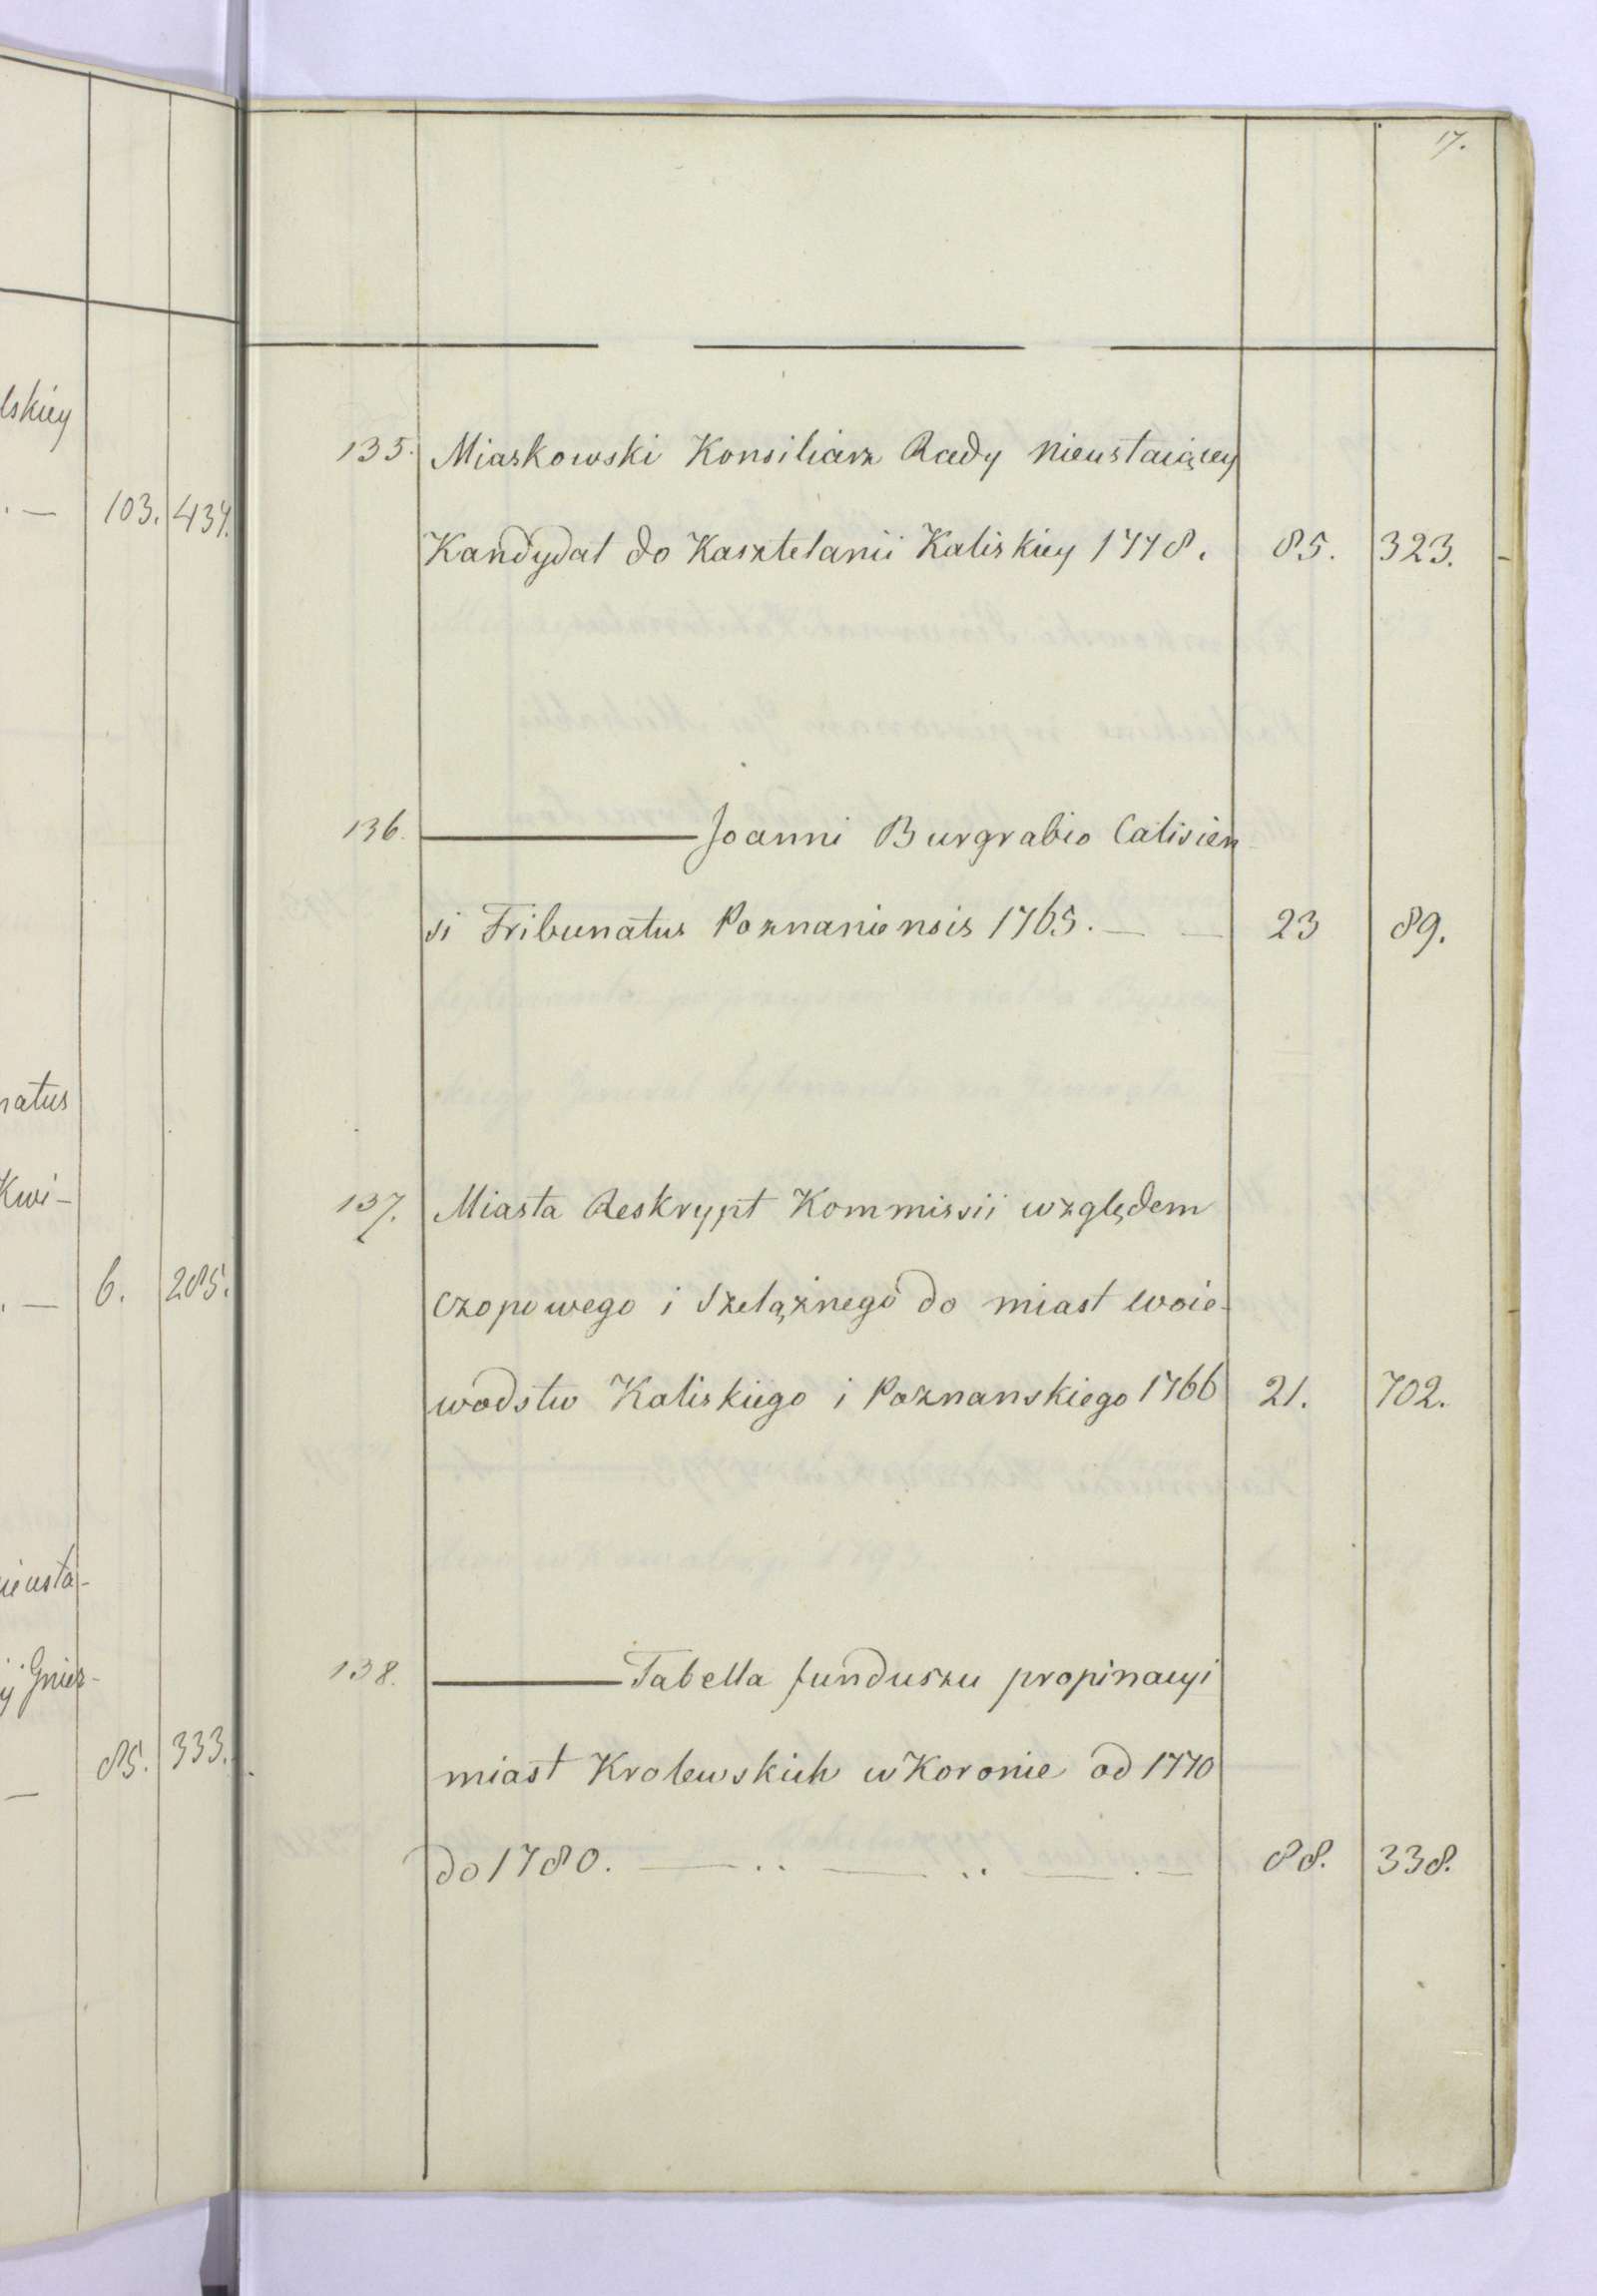 lskiey
. — 103. 434.
natus
Kwi-
. — 6. 285.
nieusta-
y Gniez-
— 85. 333.
17.
135. Miaskowski Konsiliarz Rady Nieustaiącey
Kandydat do Kasztelanii Kaliskiey 1778. 85. 323.
136. ——— Joanni Burgrabio Calisien
si Tribunatus Poznaniensis 1765. — — 23 89.
137. Miasta Reskrypt Kommissii względem
Czopowego i Szelążnego do miast Woie-
wodstw Kaliskiego i Poznanskiego 1766 21. 702.
138. ——— Tabella funduszu propinacyi
miast Krolewskich w Koronie od 1770
do 1780. — .. — .. — . — 88. 338.